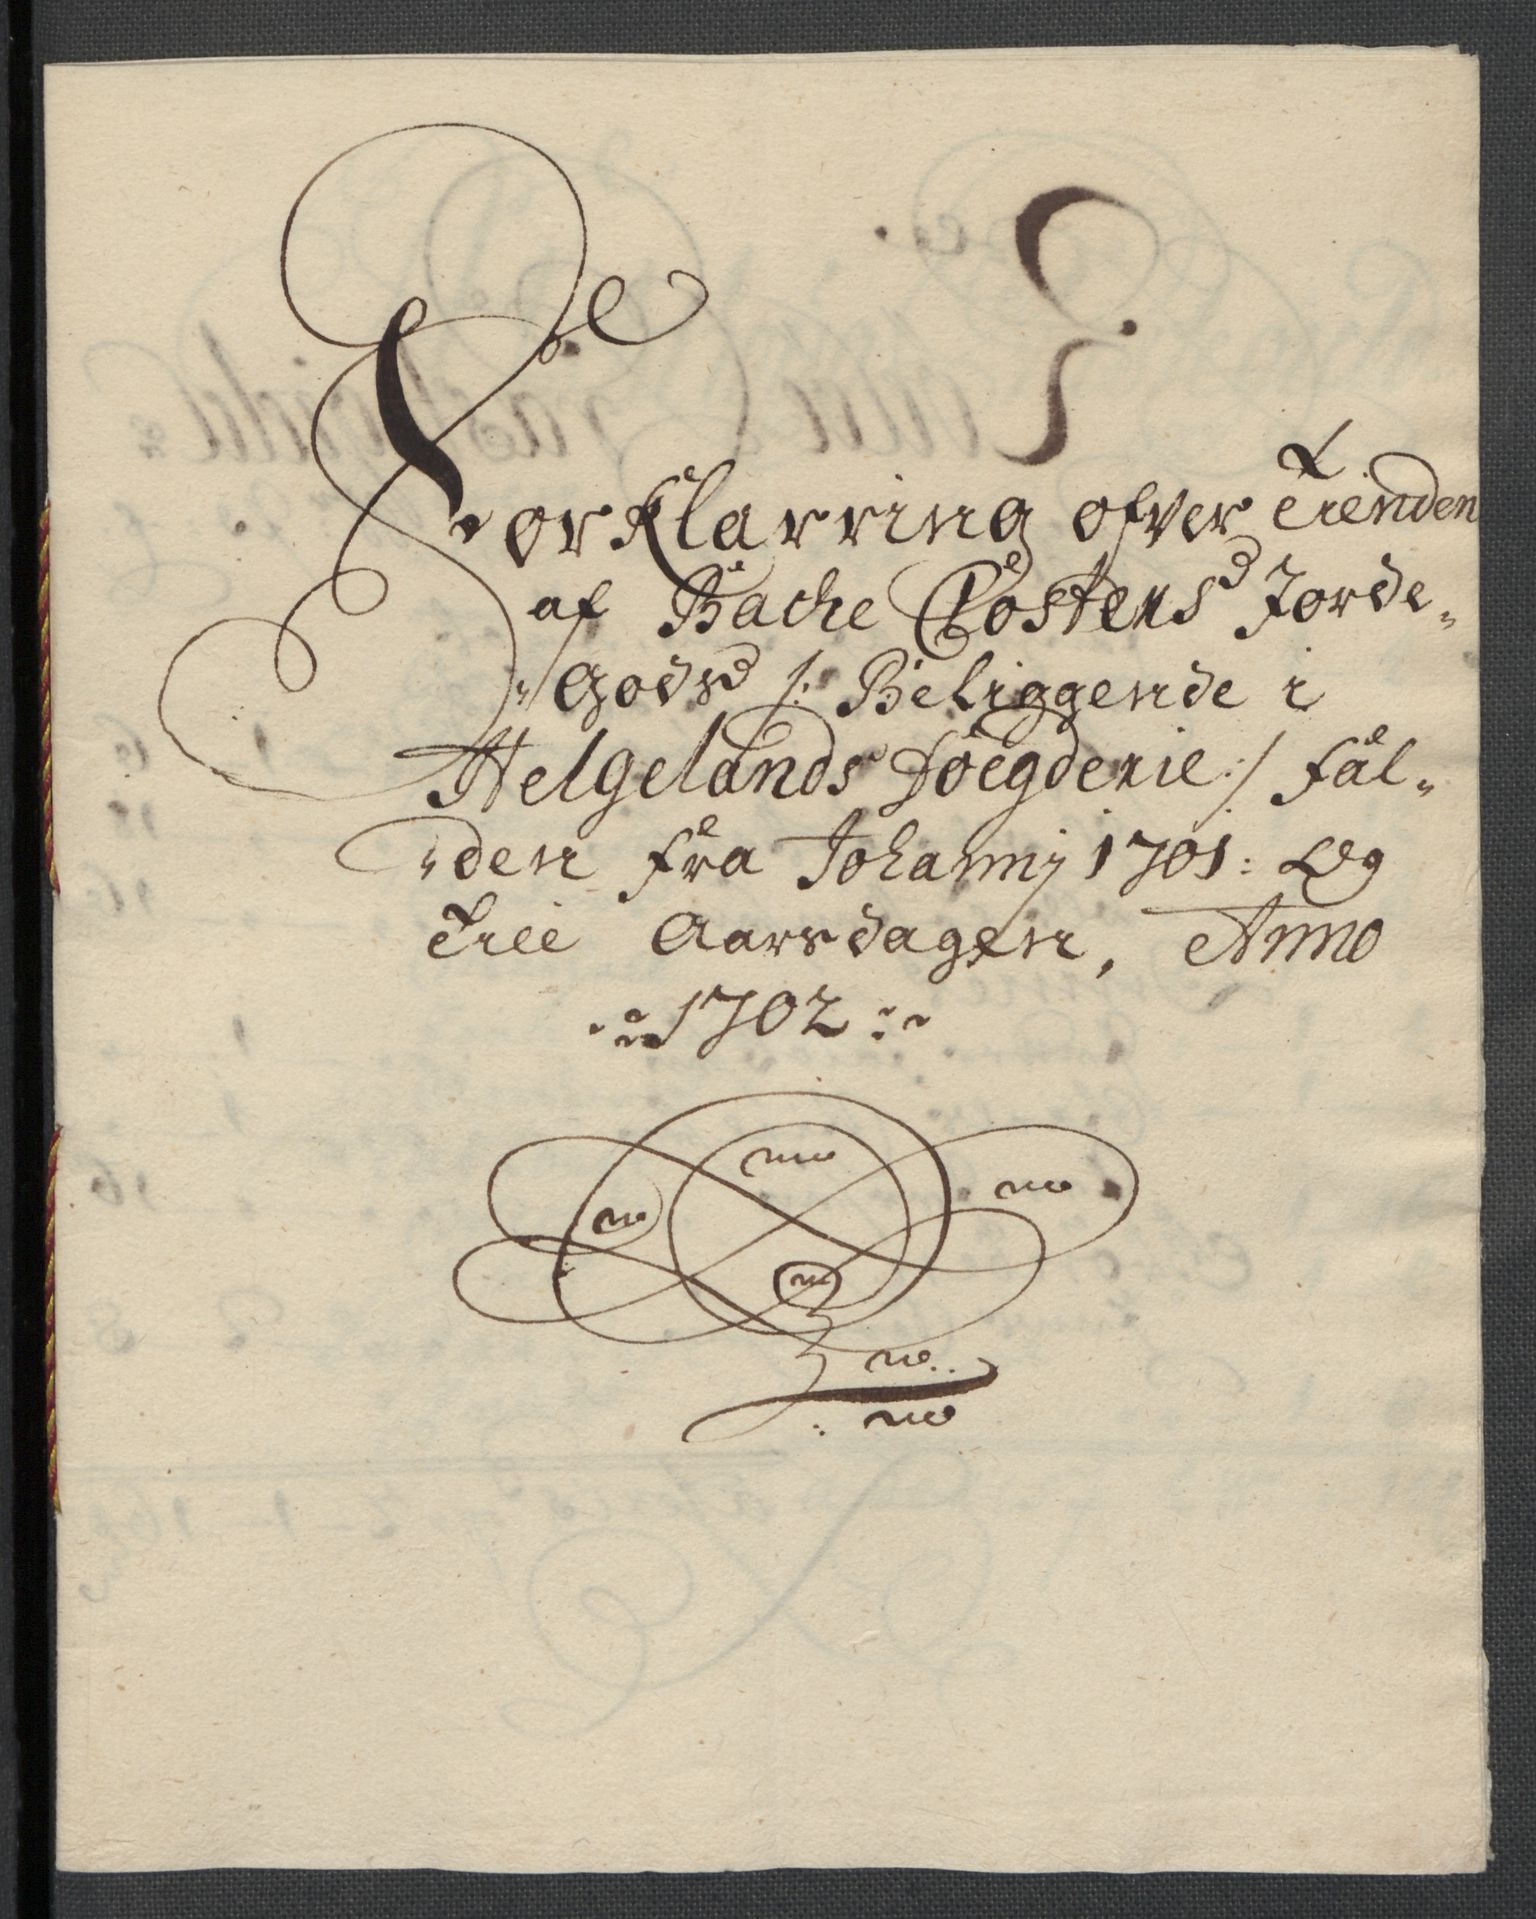 Forklarring ofver Tienden
af Backe Closters Jorde-
Gods /: Beliggende i
Helgelands Foegderie :/ fal-
den fra Johannj 1701: Og
Till Aarsdagen, Anno
1702